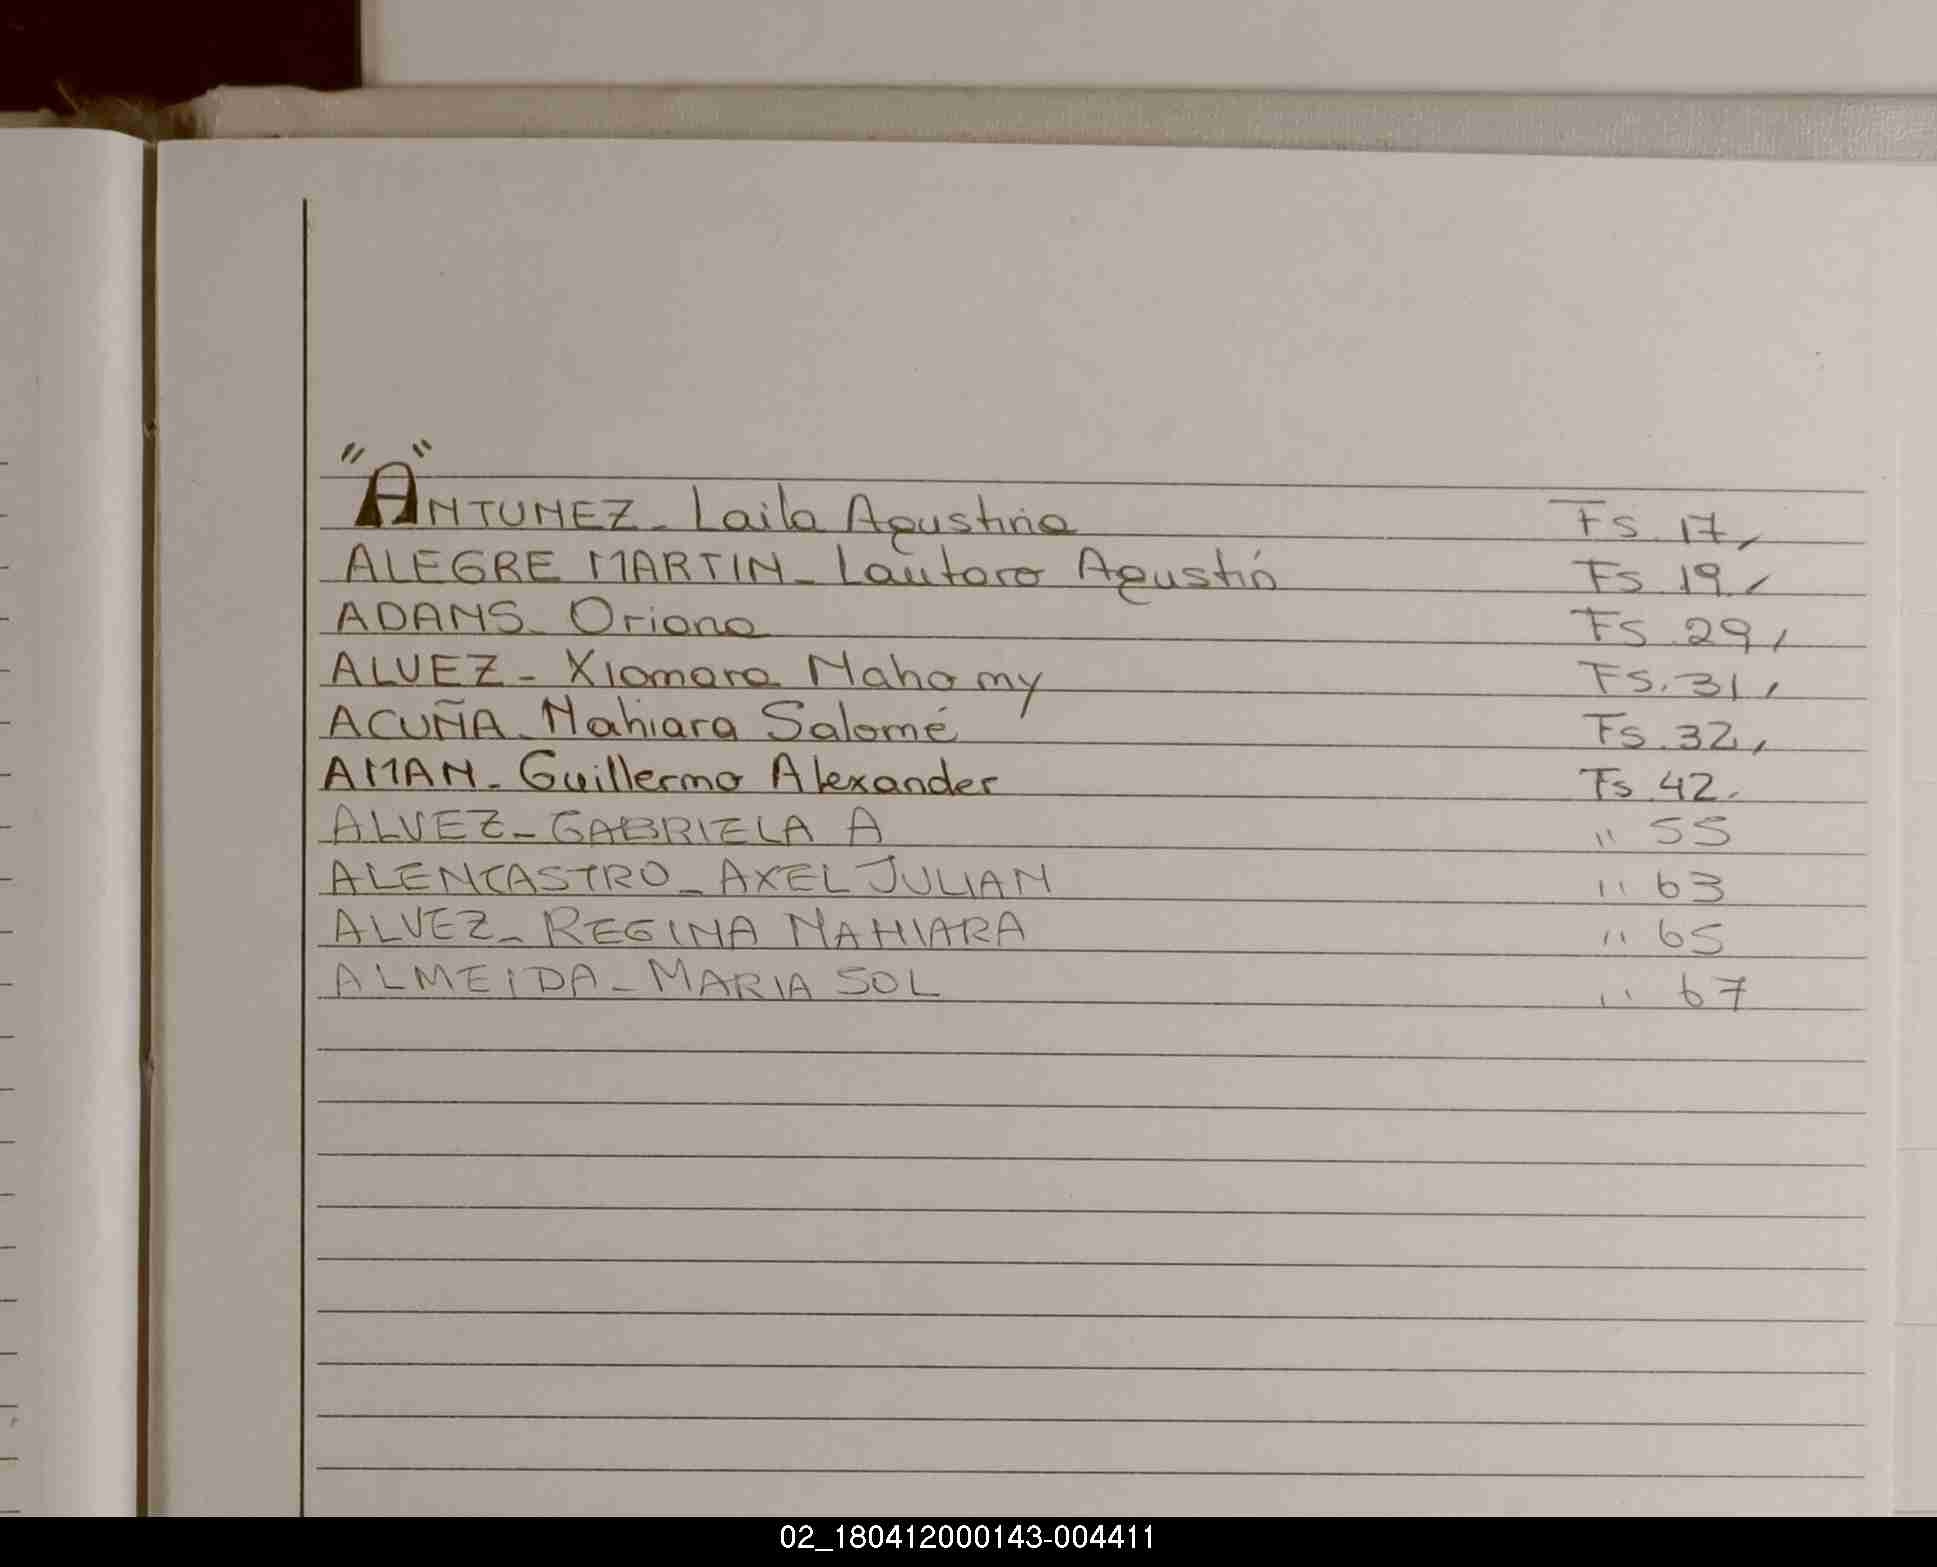 "A"
ANTUNEZ - Laila Agustina Fs. 17,
ALEGRE MARTIN - Lautaro Agustín Fs. 19,
ADAMS - Oriana Fs. 29,
ALVEZ - Xiomara Nahomy Fs. 31,
ACUÑA - Nahiara Salomé Fs. 32,
AMAN - Guillermo Alexander Fs. 42.
ALVEZ - GABRIELA A " 55
ALENCASTRO - AXEL JULIAN " 63
ALVEZ - REGINA NAHIARA " 65
ALMEIDA - MARIA SOL " 67
02_180412000143-004411